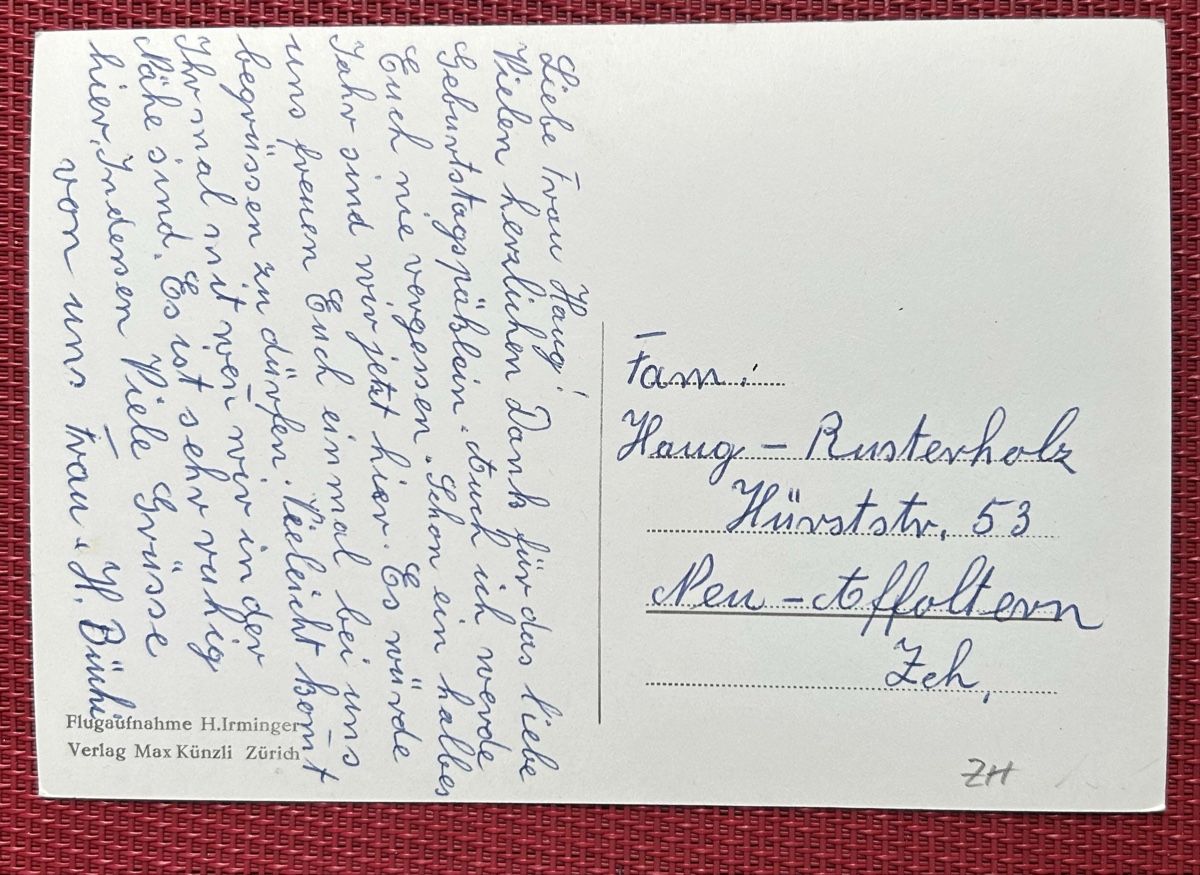 Liebe Frau Haug!
Vielen herzlichen Dank für das liebe
Geburtstagspäklein. Auch ich werde
Euch nie vergessen. Schon ein halbes
Jahr sind wir jetzt hier. Es würde
uns freuen Euch einmal bei uns
begrüssen zu dürfen. Vieleicht komt
Ihr mal mit wen wir in der
Nähe sind. Es ist sehr ruhig
hier. Indessen Viele Grüsse
von uns Frau & H. Büchi
Fam.
Haug - Rusterholz
Hürststr. 53
Neu - Affoltern
Zch.
Flugaufnahme H.Irminger
Verlag Max Künzli Zürich
ZH